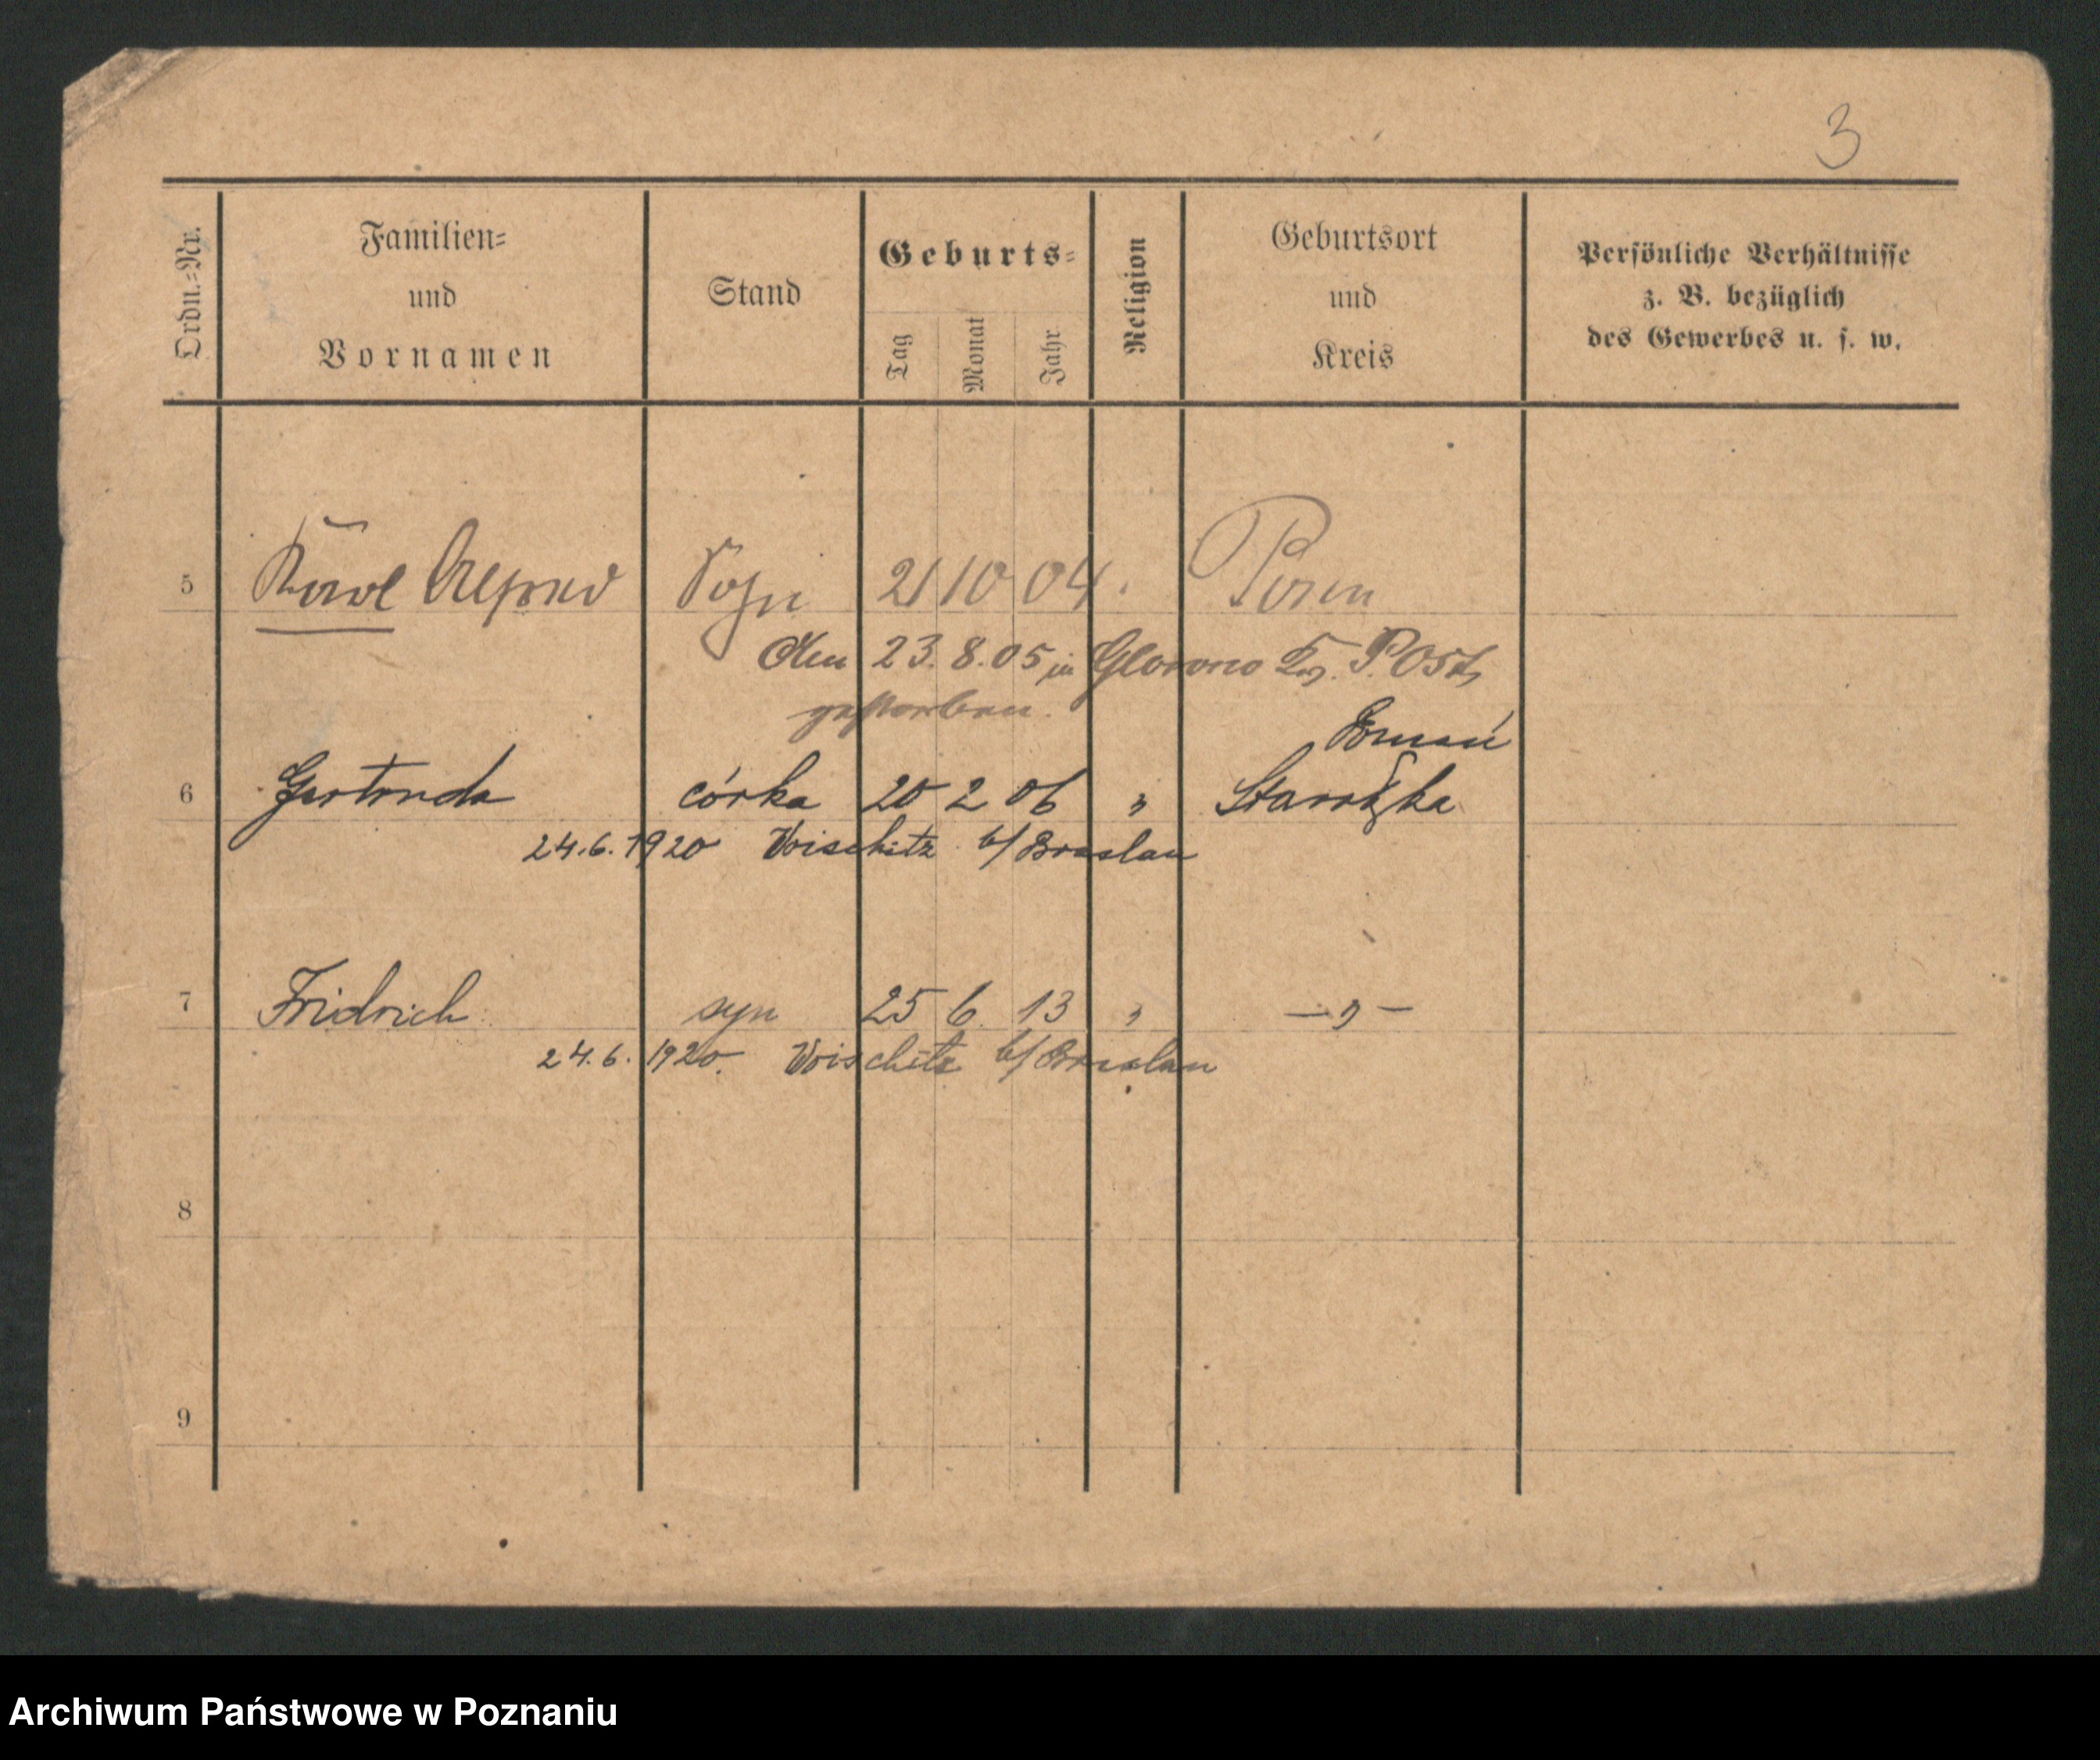 3
Ordn.=Nr.
Familien=
und
Vornamen
Stand
Geburts=
Tag
Monat
Jahr
Religion
Geburtsort
und
Kreis
Persönliche Verhältnisse
z. B. bezüglich
des Gewerbes u. s. w.
5 Karl Alfred Sohn 21 10 04. Posen
Den 23. 8. 05 in Glowno P. Ost,
gestorben.
Poznań
6 Gertruda córka 20 2 06 " Starołęka
24.6.1920 Woischitz b/Breslau
7 Fridrich syn 25 6. 13 " — " —
24.6.1920. Woischitz b/Breslau
8
9
Archiwum Państwowe w Poznaniu